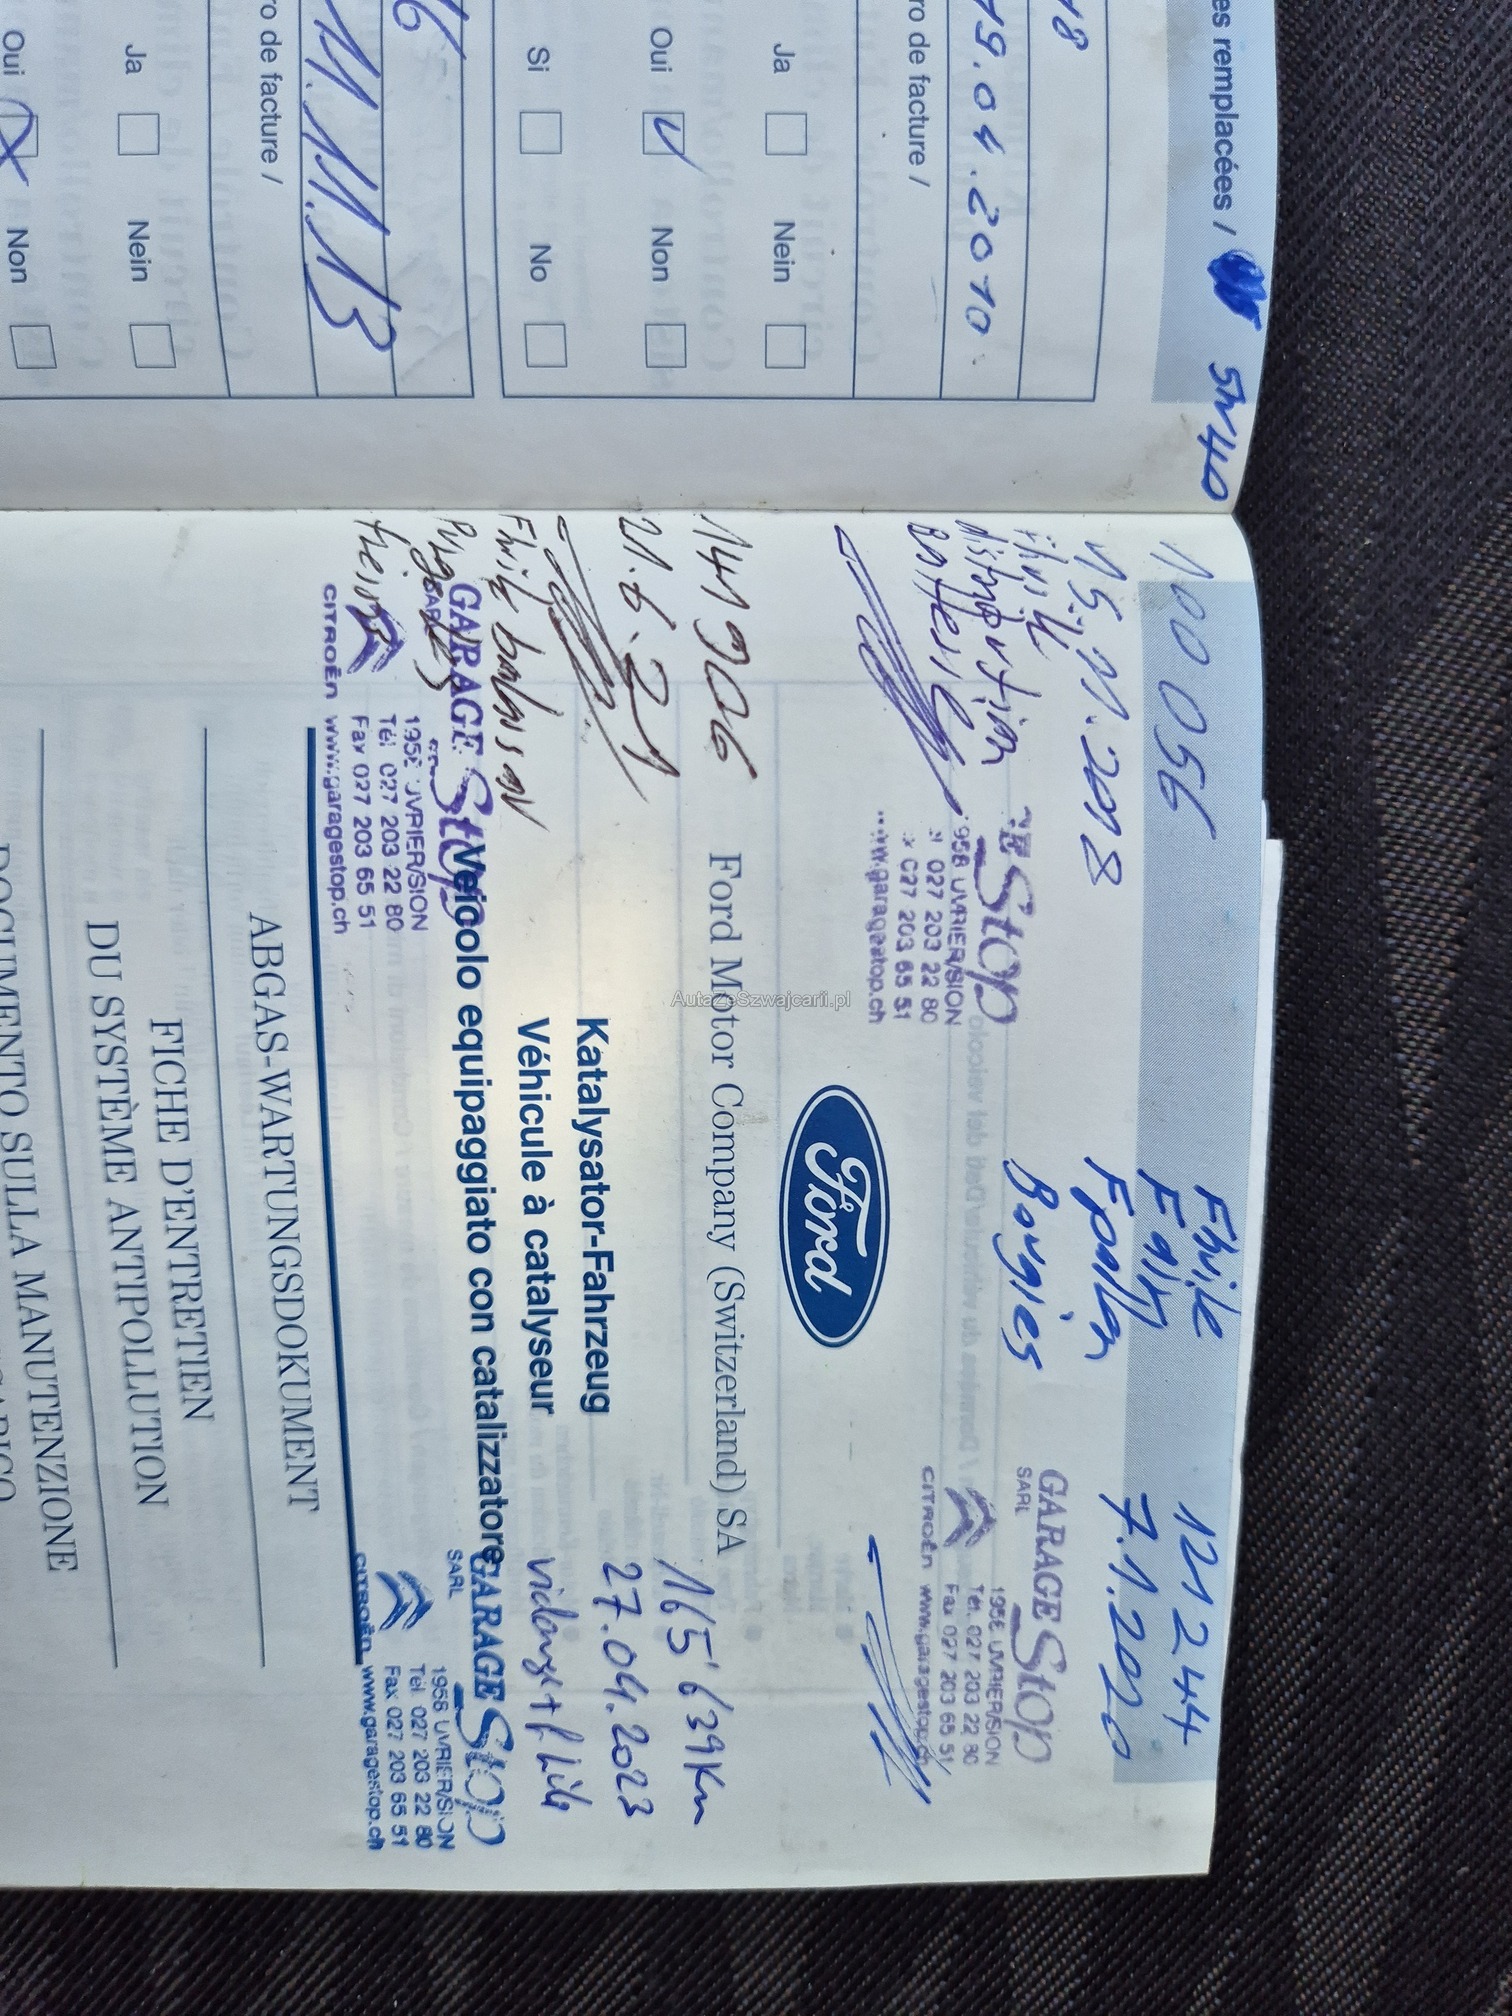 es remplacées /
5W40
18
19.04.2010
ro de facture /
Ja
Nein
Oui
Non
Si
No
6
11.11.13
ro de facture /
Ja
Nein
Oui
Non
100 056
15.11.2018
Huile
distribution
Batterie
Stop
1958 UVRIER/SION
027 203 22 80
027 203 65 51
www.garagestop.ch
Huile
F air
F pollen
Bougies
121 244
7.1.2020
GARAGE Stop
SARL
1958 UVRIER/SION
Tél. 027 203 22 80
Fax 027 203 65 51
CITROËN www.garagestop.ch
Ford
Ford Motor Company (Switzerland) SA
141 906
21.6.21
Huile
Purge
freins
GARAGE Stop
SARL
1958 UVRIER/SION
Tél. 027 203 22 80
Fax 027 203 65 51
CITROËN www.garagestop.ch
165'639 Km
27.04.2023
vidange + f huile
GARAGE Stop
SARL
1958 UVRIER/SION
Tél. 027 203 22 80
Fax 027 203 65 51
CITROËN www.garagestop.ch
Katalysator-Fahrzeug
Véhicule à catalyseur
Veicolo equipaggiato con catalizzatore
ABGAS-WARTUNGSDOKUMENT
FICHE D'ENTRETIEN
DU SYSTÈME ANTIPOLLUTION
DOCUMENTO SULLA MANUTENZIONE
AutaZeSzwajcarii.pl